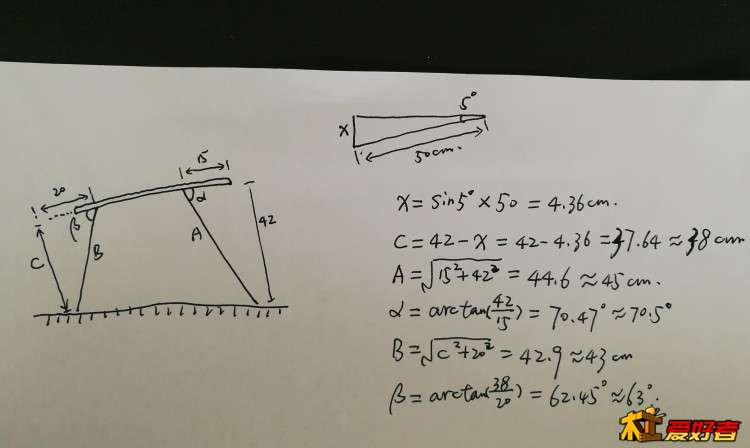 5°
X
50cm.
15
20
β
α
42
A
B
C
X = sin5° × 50 = 4.36cm.
C = 42 - x = 42 - 4.36 = 37.64 ≈ 38cm
A = √15²+42² = 44.6 ≈ 45cm.
α = arctan(42/15) = 70.47° ≈ 70.5°
B = √C²+20² = 42.9 ≈ 43cm
β = arctan(38/20) = 62.45° ≈ 63°.
木工爱好者